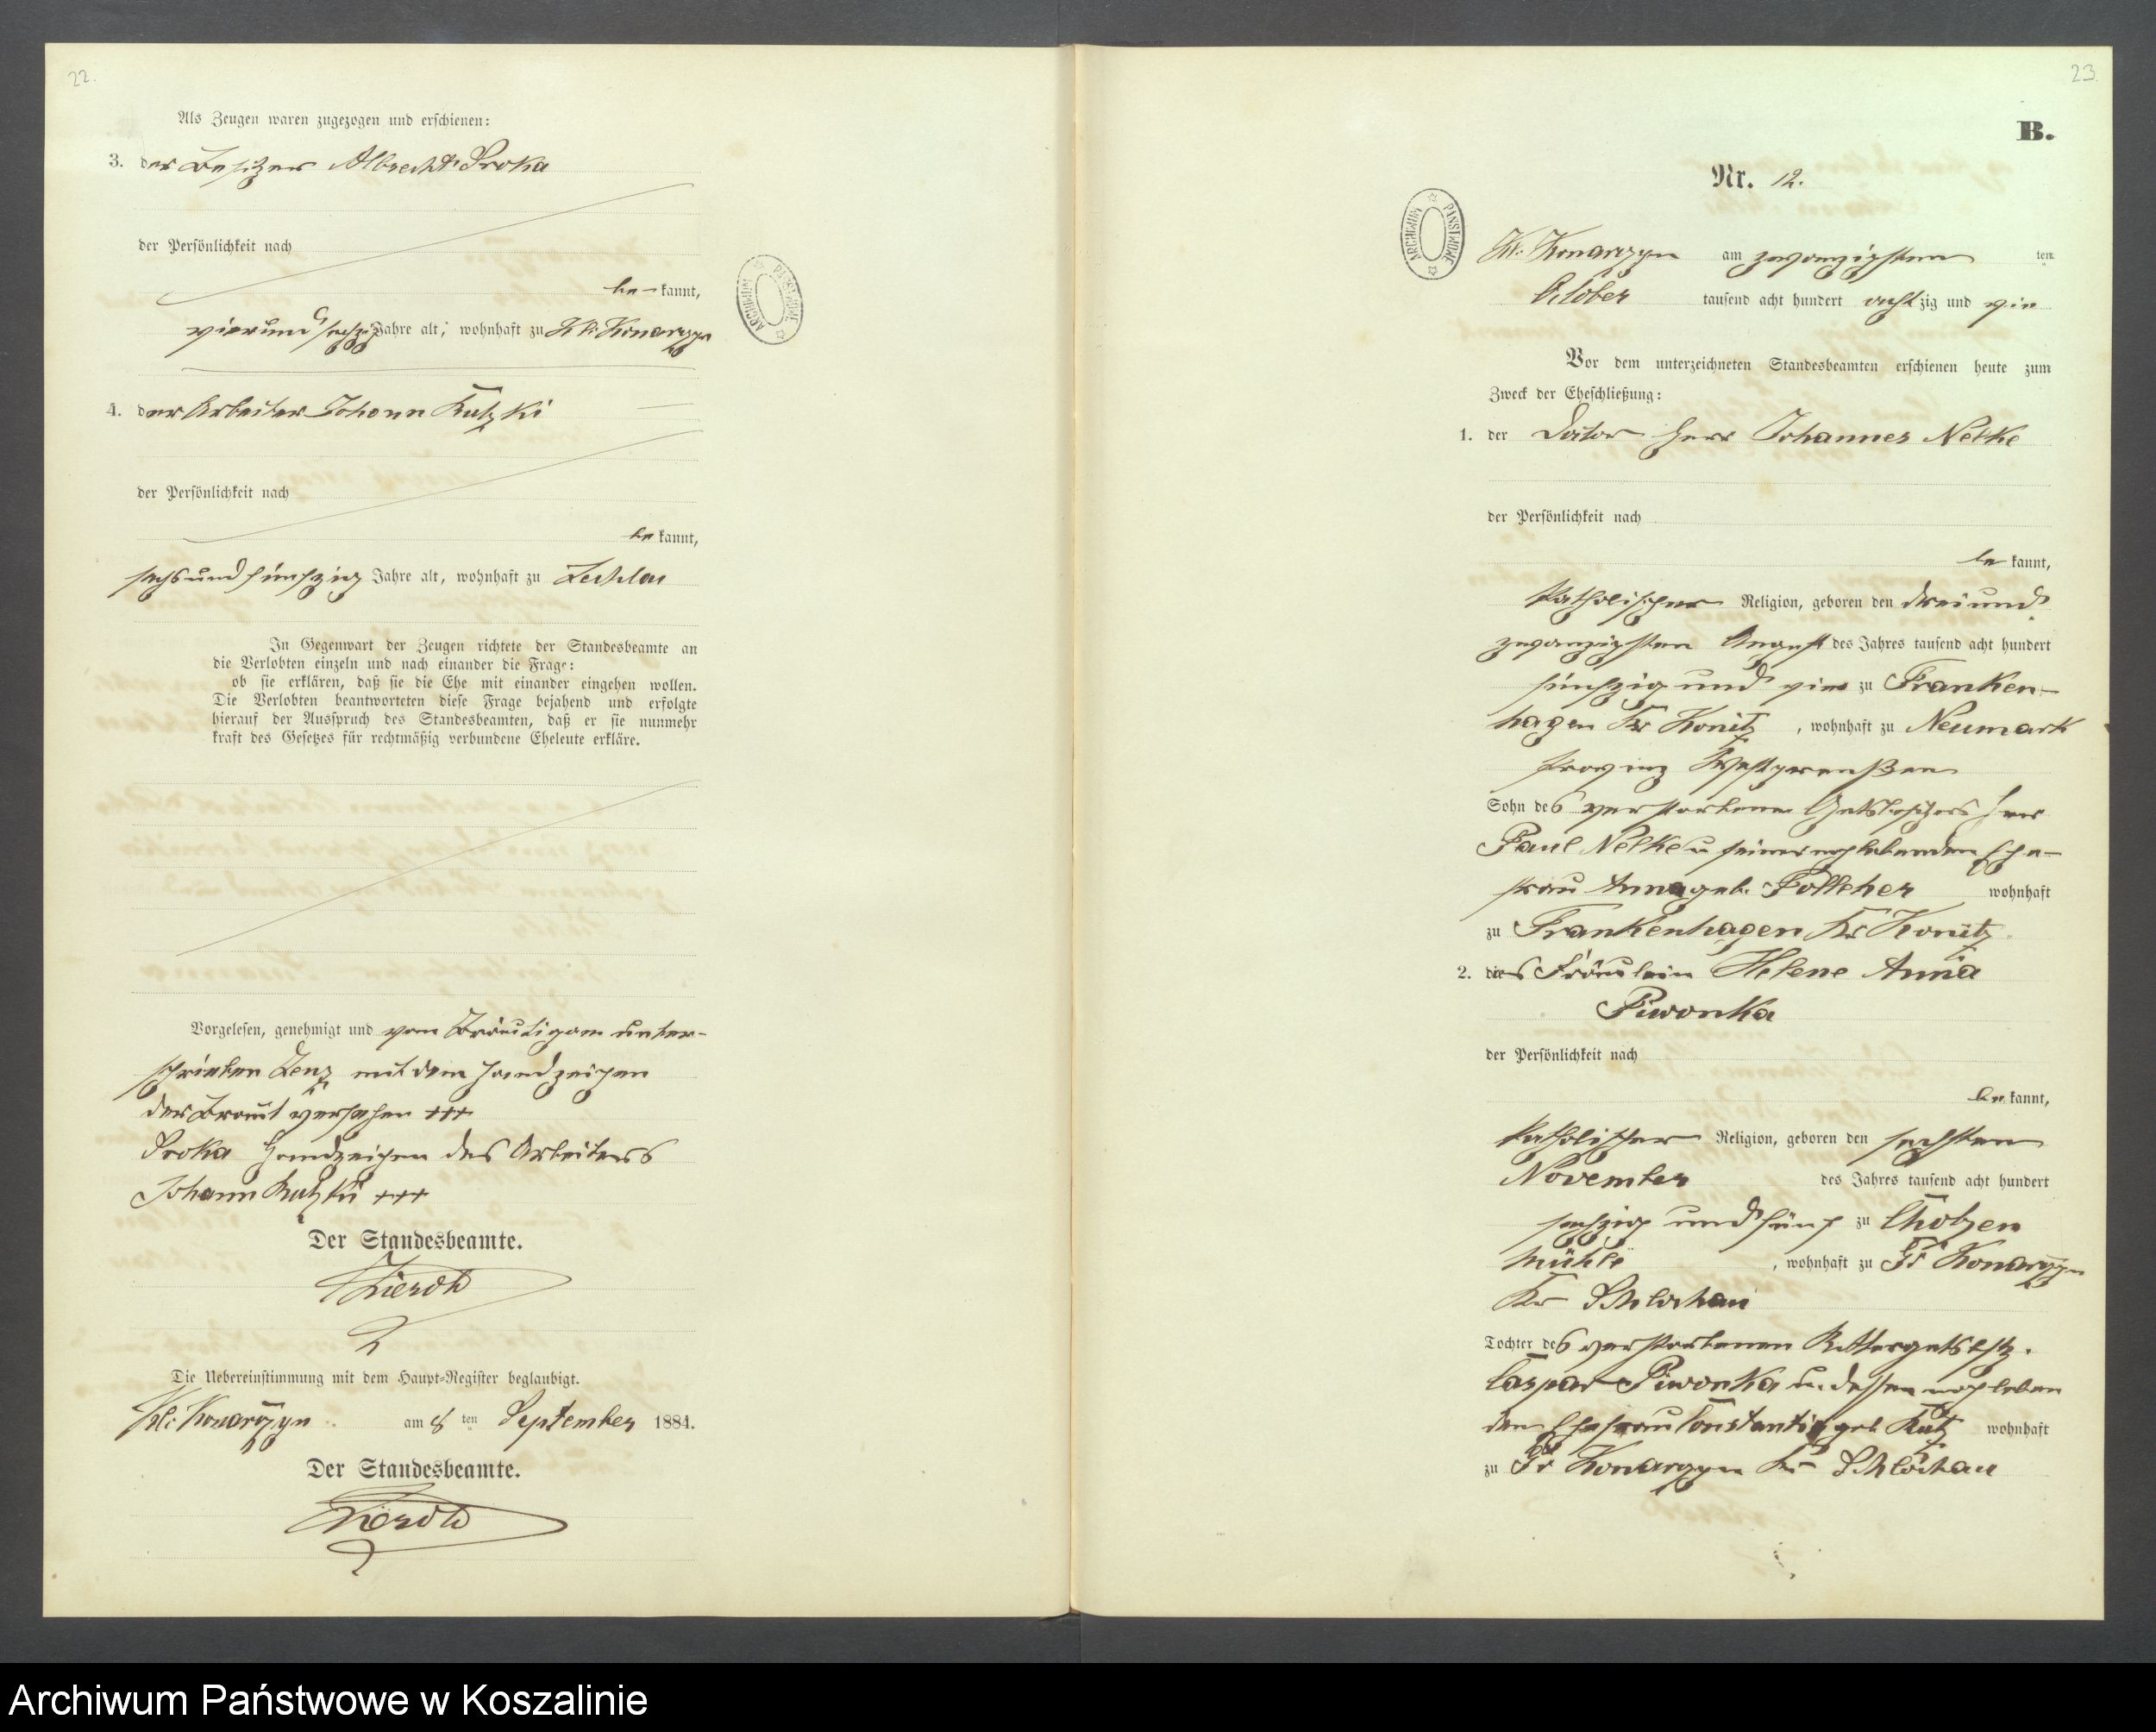 22.
Als Zeugen waren zugezogen und erschienen:
3. der Besitzer Albrecht Proka
der Persönlichkeit nach
be-kannt,
vierundsechzig Jahre alt, wohnhaft zu Kl: Konarzyn
4. der Arbeiter Johann Kutzki
der Persönlichkeit nach
be kannt,
sechsundfünfzig Jahre alt, wohnhaft zu Zechlau
In Gegenwart der Zeugen richtete der Standesbeamte an
die Verlobten einzeln und nach einander die Frage:
ob sie erklären, daß sie die Ehe mit einander eingehen wollen.
Die Verlobten beantworteten diese Frage bejahend und erfolgte
hierauf der Ausspruch des Standesbeamten, daß er sie nunmehr
kraft des Gesetzes für rechtmäßig verbundene Eheleute erkläre.
Vorgelesen, genehmigt und vom Bräutigam unter-
schrieben Lenz mit dem Handzeichen
der Braut versehen +++
Proka Handzeichen des Arbeiters
Johann Kutzki +++
Der Standesbeamte.
Die Uebereinstimmung mit dem Haupt-Register beglaubigt.
Kl: Konarzyn am 8 ten September 1884.
Der Standesbeamte.
ARCHIWUM PAŃSTWOWE
23.
B.
Nr. 12.
ARCHIWUM PAŃSTWOWE
Kl: Konarzyn am zwanzigsten ten
October tausend acht hundert achtzig und vier
Vor dem unterzeichneten Standesbeamten erschienen heute zum
Zweck der Eheschließung:
1. der Doctor Herr Johannes Nelke
der Persönlichkeit nach
be kannt,
katholischer Religion, geboren den dreiund
zwanzigsten August des Jahres tausend acht hundert
fünfzig und vier zu Franken-
hagen Kr Konitz, wohnhaft zu Neumark
Provinz Westpreußen
Sohn des verstorbenen Gutsbesitzers Herr
Paul Nelke u seiner noch lebenden Ehe-
frau Anna geb. wohnhaft
zu Frankenhagen Kr Konitz
2. die Fräulein Helene Anna
Piwonka
der Persönlichkeit nach
be kannt,
katholischer Religion, geboren den sechsten
November des Jahres tausend acht hundert
sechzig und fünf zu Chotzen
mühle, wohnhaft zu Gr Konarzyn
Kr Schlochau
Tochter des verstorbenen Rittergutsbesitz.
Caspar Piwonka u. dessen noch leben
den Ehefrau Constantia geb Kutz wohnhaft
zu Gr Konarzyn Kr Schlochau
Archiwum Państwowe w Koszalinie